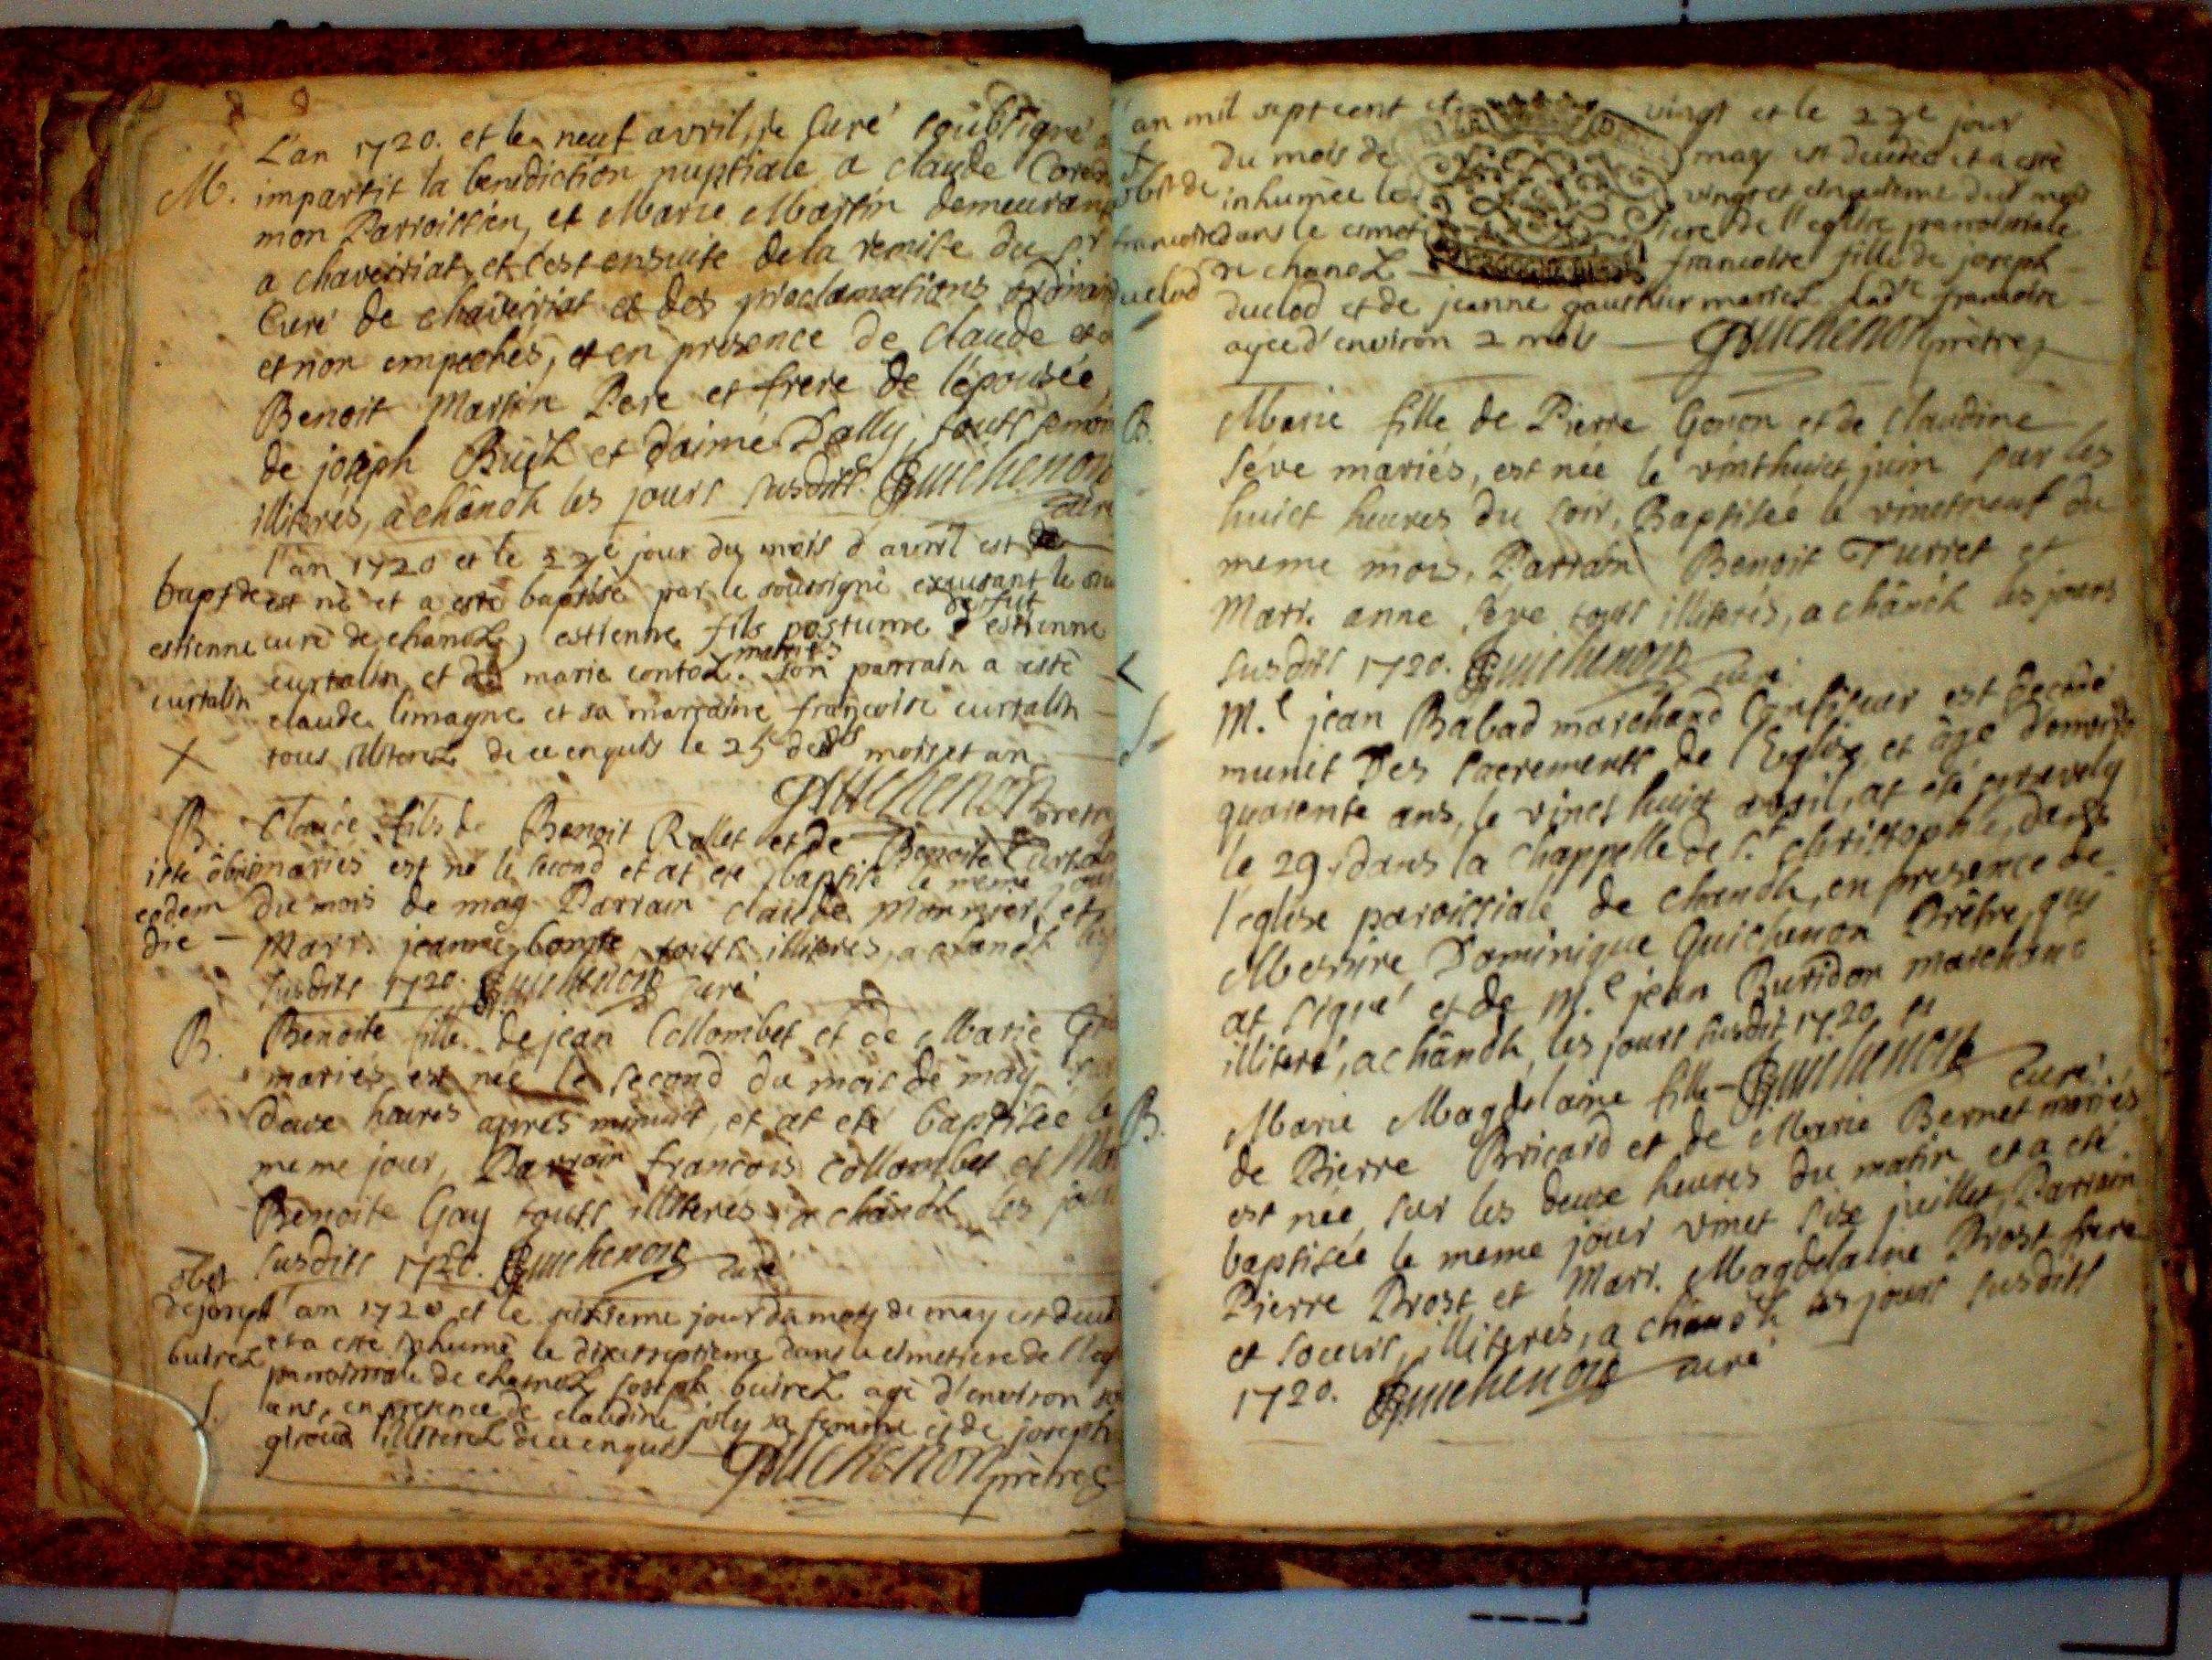 L'an 1720. et le neuf avril, je Curé soubsigné
M. impartit la benediction nuptiale a claude
mon Parroissien, et Marie Martin demeurant
a chaveiriat, et c'est ensuite de la remise du sr
Curé de chaveiriat et des proclamations
et non empechés, et en presence de claude et
Benoit Martin Pere et frere de l'épousée,
de joseph et d'aimé Dally, touts
illiterés, a chânoh les jours susdits. Guichenon
curé
l'an 1720 et le 23e jour du mois d'avril est
bapt de est né et a esté baptisé par le soussigné le
defut
estienne curé de chanoz, estienne fils postume d'estienne
mariés
curtalin curtalin et de marie contoz. son parrain a esté
claude limagne et sa marraine françoise curtalin
X tous illiterez de ce enquis le 25 desdts mois et an
Guichenon pretre
B. Claude fils de Benoit Rollet et de Benoite
iste obiit mariés est né le second et at eté baptisé le meme jour
eodem du mois de may Parrain claude Monnier et
die Marr. jeanne touts illiterés, a chanoh
susdits 1720. Guichenon curé
B. Benoite fille de jean Collombet et de Marie
mariés est née le second du mois de may
deux heures apres minuit, et at eté baptisée le
meme jour, Parrain francois Collombet et
Benoite Gay touts illiterés a chânoh les jours
susdits 1720. Guichenon curé
obit
de joseph l'an 1720 et le sixieme jour du mois de may est
buirez et a esté inhumé le dixetseptieme dans le cimetiere de
parroissiale de chanoz joseph buirez agé d'environ
ans, en presence de claudine joly sa femme et de joseph
giroud illiterez de ce enquis
Guichenon prètre
an mil sept cent et vingt et le 23e jour
du mois de may est decedeé et a esté
obit de inhumée le vingt et cinquieme dud mois
francoise dans le cimetiere de l'eglise parroissiale
de chanoz francoise fille de joseph
duclod duclod et de jeanne gauthier mariez ladte francoise
agée d'environ 2 mois Guichenon prètre
B. Marie fille de Pierre Gonon et de Claudine
Séve mariés, est née le vinthuict juin sur les
huict heures du soir, Baptisée le vinctneuf du
meme mois, Parrain Benoit Turret et
Marr. anne Séve touts illiterés, a chânoh les jours
susdits 1720. Guichenon curé
M.e jean Babad marchand est decedé
munit Des sacrements de l'Eglise, et âgé d'environ
quarente ans, le vinct huict avril, at eté ensevely
le 29. dans la chappelle de S.t christophle, dans
l'eglise paroissiale de chanoh, en presence de
Messire Dominique Guichenon Prêtre, qui
at signé et de M.e jean Buridon marchand
illiteré, a chânoh, les jours susdit 1720.
Guichenon curé
B. Marie Magdelaine fille
de Pierre Bricard et de Marie Bernet mariés
est née, sur les deux heures du matin et a eté
baptisée le meme jour vinct sixe juillet, Parrain
Pierre Brost et Marr. Magdelaine Brost frere
et soeurs, illiterés, a chânoh les jours susdits
1720. Guichenon curé